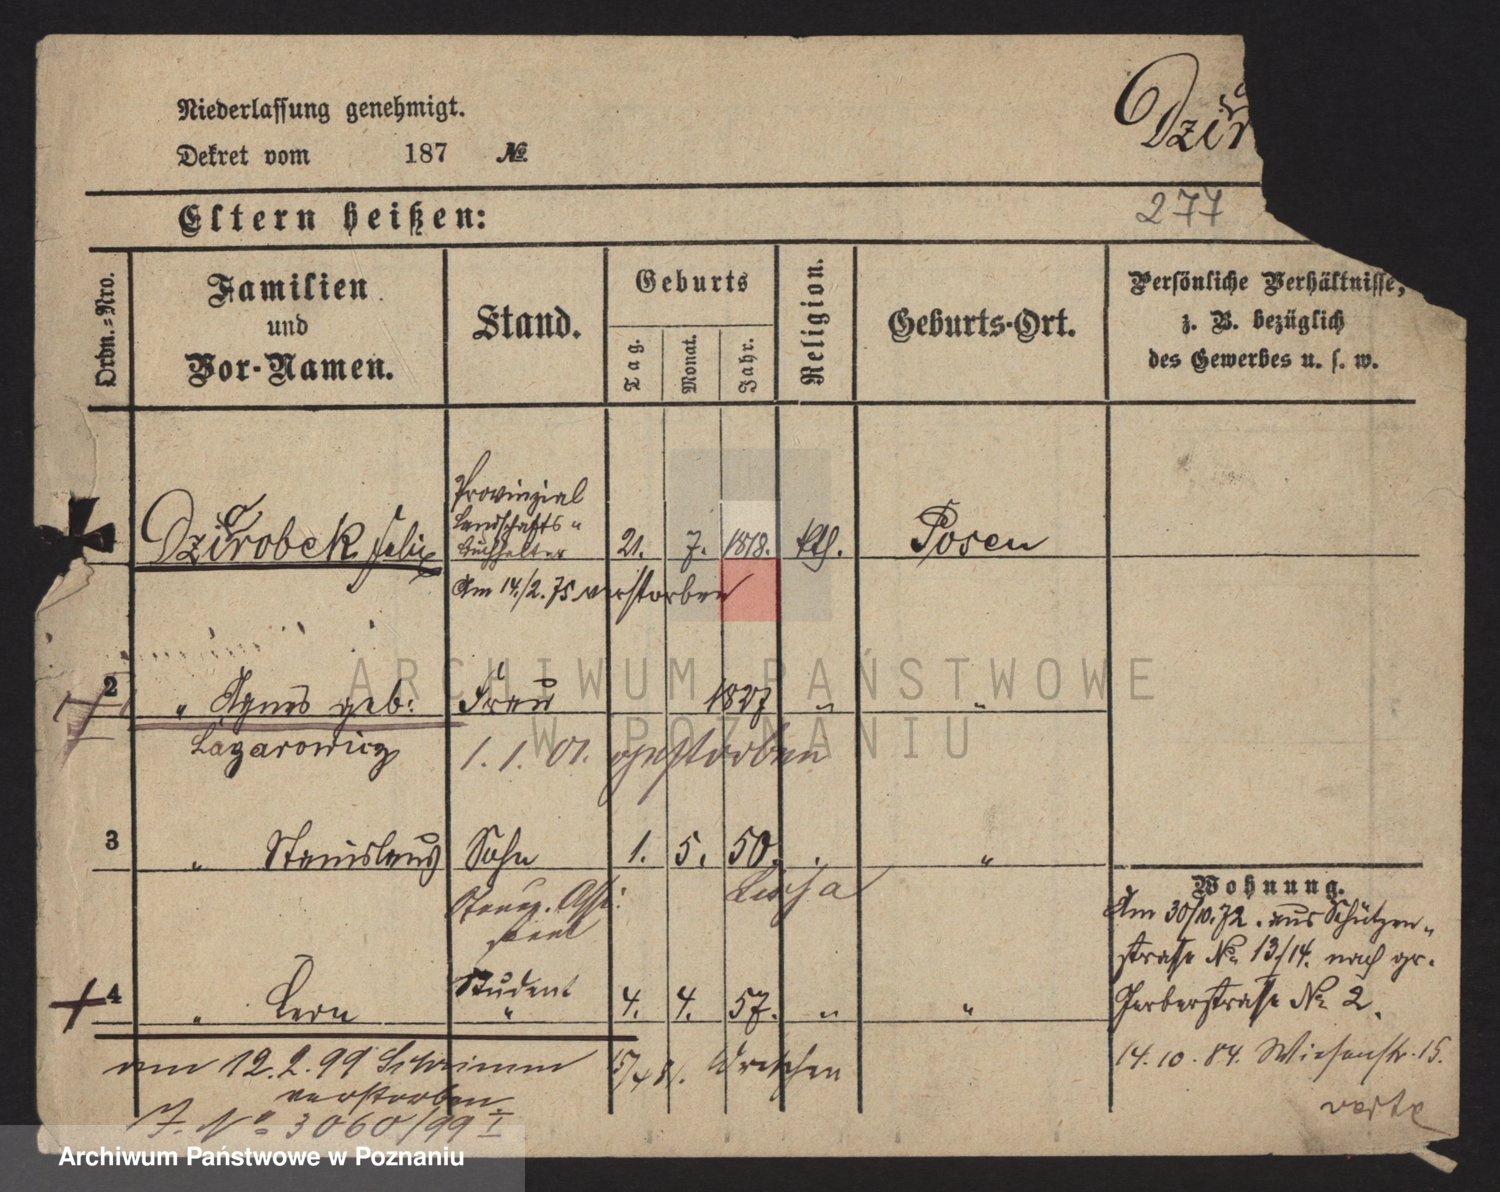 Niederlassung genehmigt.
Dekret vom 187 №
Dzir
277
Eltern heißen:
Ordn.=Nro.
Familien
und
Vor-Namen.
Stand.
Geburts
Tag.
Monat.
Jahr.
Religion.
Geburts-Ort.
Persönliche Verhältnisse,
z. B. bezüglich
des Gewerbes u. s. w.
Provinzial
Landschafts
Buchhalter
Dzirobek Felix
21. 7. 1818. kth. Posen
Am 14./2. 75 verstorben
2 " Agnes geb: Frau 1827 " "
Lazarowicz
1. 1. 01. gestorben
3 " Stanislaus Sohn 1. 5. 50. "
Lissa
4 " Leon Student 4. 4. 57. " "
am 12.2.99 Schrimm
verstorben
J. No 3060/99 I
Wreschen
Wohnung.
Am 30/10. 72. aus Schützen-
strasse No 13/14. nach gr.
Gerberstrasse No 2.
14. 10. 84. Wiesenstr. 15.
verte
ARCHIWUM PAŃSTWOWE
W POZNANIU
Archiwum Państwowe w Poznaniu